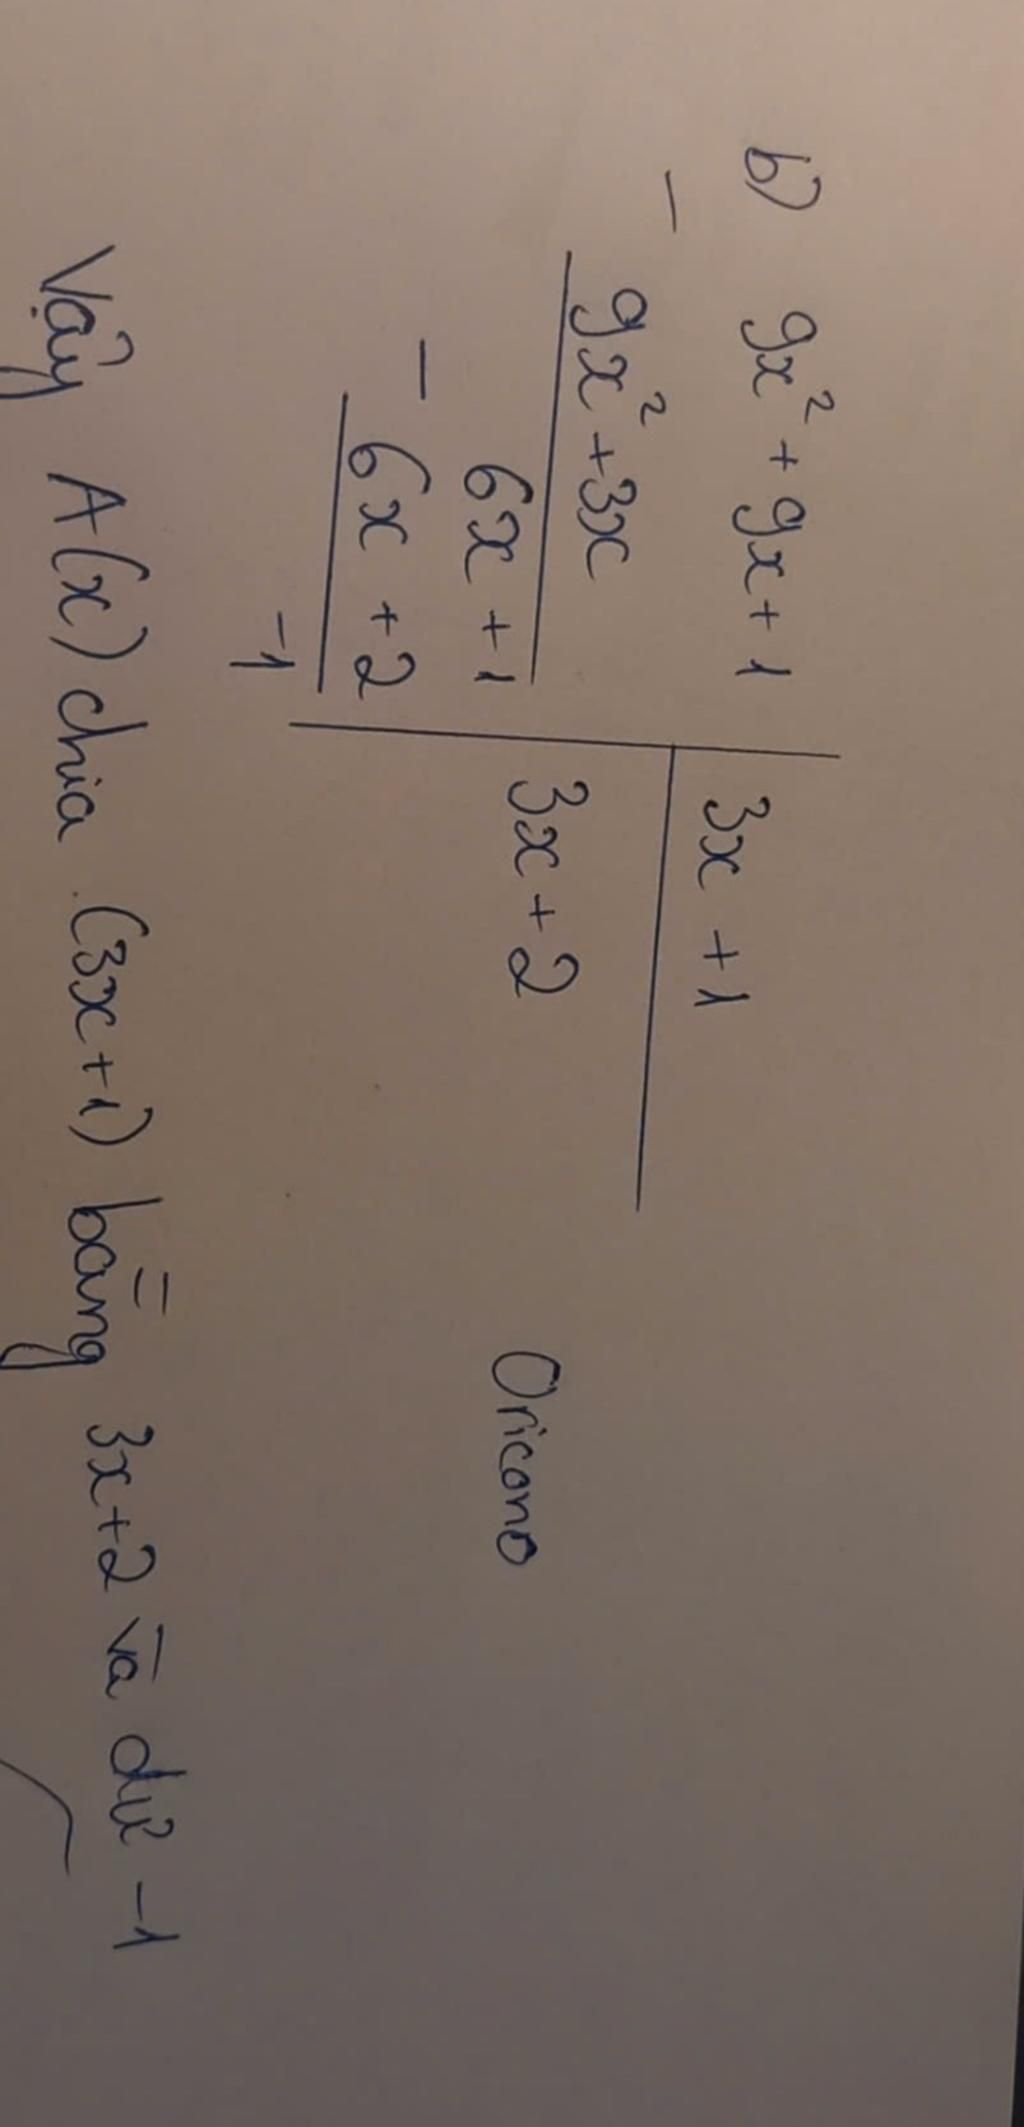 b) 9x² + 9x + 1 | 3x + 1
− 9x² + 3x
3x + 2
6x + 1
− 6x + 2
-1
Oricono
Vậy A(x) chia (3x+1) bằng 3x+2 và dư -1